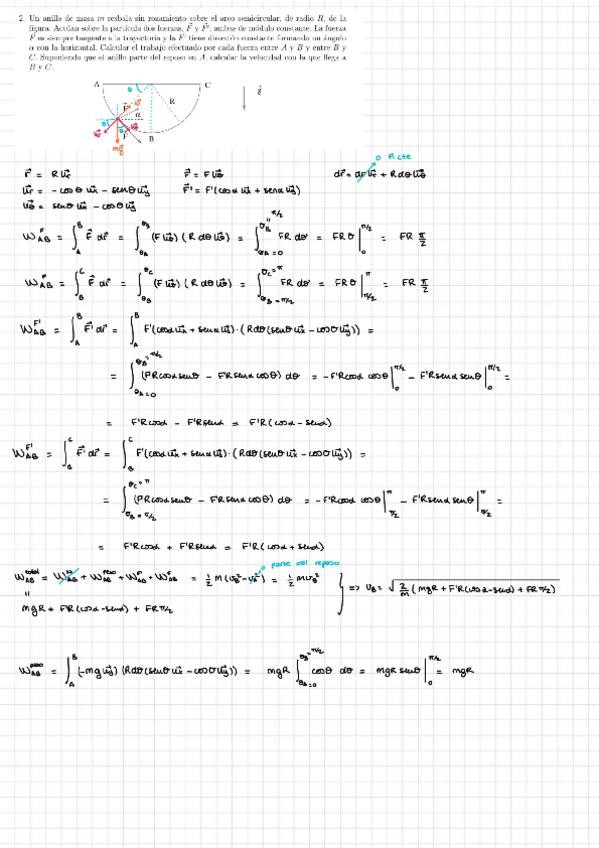 2. Un anillo de masa m resbala sin rozamiento sobre el arco semicircular, de radio R, de la
figura. Actúan sobre la partícula dos fuerzas, F⃗ y F⃗', ambas de módulo constante. La fuerza
F⃗ es siempre tangente a la trayectoria y la F⃗' tiene dirección constante formando un ángulo
α con la horizontal. Calcular el trabajo efectuado por cada fuerza entre A y B y entre B y
C. Suponiendo que el anillo parte del reposo en A, calcular la velocidad con la que llega a
B y C.
A θ C
R
g⃗
B
0 R cte
r⃗ = R u⃗r F⃗ = F u⃗θ dr⃗ = dr u⃗r + R dθ u⃗θ
u⃗r = - cosθ u⃗x - senθ u⃗y F⃗' = F'(cosα u⃗x + senα u⃗y)
u⃗θ = senθ u⃗x - cosθ u⃗y
W_AB^F = ∫_A^B F⃗ dr⃗ = ∫_θA^θB (F u⃗θ)(R dθ u⃗θ) = ∫_θA=0^θB=π/2 FR dθ = FRθ |_0^π/2 = FR π/2
W_AB^F = ∫_B^C F⃗ dr⃗ = ∫_θB^θC (F u⃗θ)(R dθ u⃗θ) = ∫_θB=π/2^θC=π FR dθ = FRθ |_π/2^π = FR π/2
W_AB^F' = ∫_A^B F⃗' dr⃗ = ∫_A^B F'(cosα u⃗x + senα u⃗y)·(R dθ(senθ u⃗x - cosθ u⃗y)) =
= ∫_θA=0^θB=π/2 (F'R cosα senθ - F'R senα cosθ) dθ = -F'R cosα cosθ |_0^π/2 - F'R senα senθ |_0^π/2 =
= F'R cosα - F'R senα = F'R (cosα - senα)
W_AB^F' = ∫_B^C F⃗' dr⃗ = ∫_B^C F'(cosα u⃗x + senα u⃗y)·(R dθ(senθ u⃗x - cosθ u⃗y)) =
= ∫_θB=π/2^θC=π (F'R cosα senθ - F'R senα cosθ) dθ = -F'R cosα cosθ |_π/2^π - F'R senα senθ |_π/2^π =
= F'R cosα + F'R senα = F'R (cosα + senα)
0 parte del reposo
W_AB^total = W_AB^N + W_AB^peso + W_AB^F' + W_AB^F = 1/2 m(v_B² - v_A²) = 1/2 m v_B² } => v_B = √(2/m (mgR + F'R(cosα - senα) + FR π/2))
=
mgR + F'R (cosα - senα) + FR π/2
W_AB^peso = ∫_A^B (-mg u⃗y)(R dθ(senθ u⃗x - cosθ u⃗y)) = mgR ∫_θA=0^θB=π/2 cosθ dθ = mgR senθ |_0^π/2 = mgR